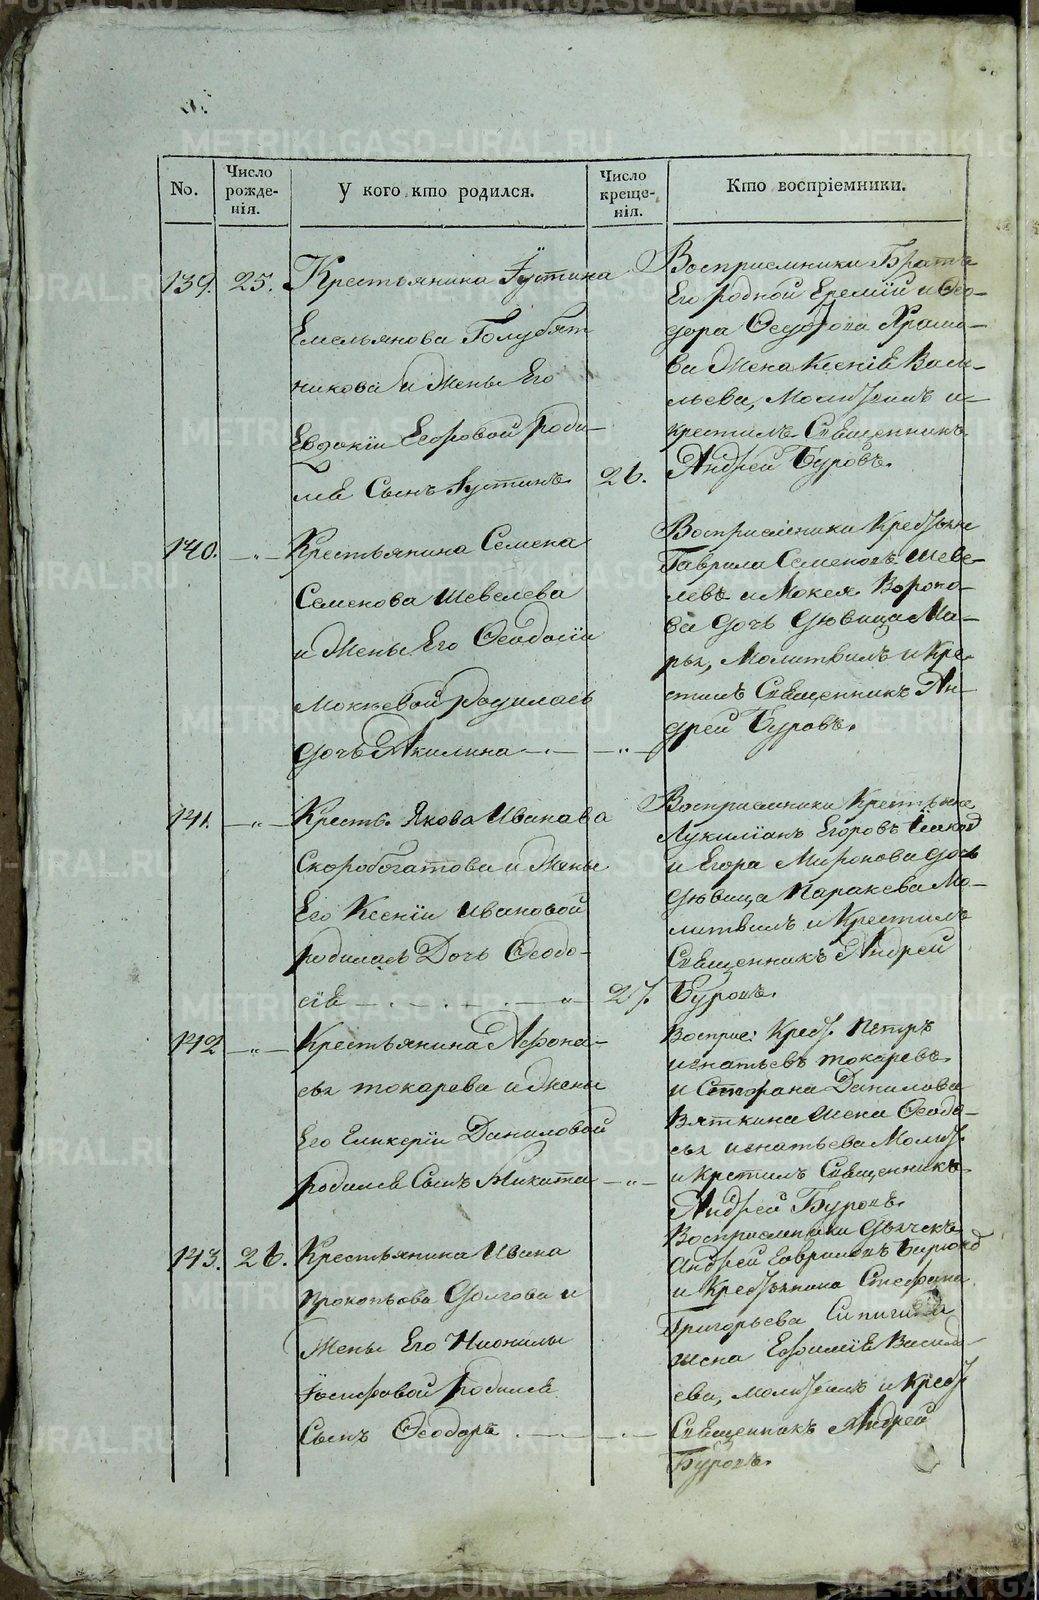 No.
Число
рожде-
нія.
У кого кто родился.
Число
креще-
нія.
Кто воспріемники.
139. 25. Крестьянина Іустина
Емельянова Голубят
никова и Жены Его
Евдокіи Егоровой роди-
лсѣ Сынъ Іустинъ. 26.
Восприемники Братъ
Его родной Еремій и Ѳео-
дора Ѳедорова Храмо-
ва Жена Ксеніѣ Васи-
льева, Молитвилъ и
крестилъ Священникъ
Андрей Буровъ.
140. —„— Крестьянина Семена
Семенова Шевелева
и Жены Его Ѳеодосіи
Мокѣевой родиласѣ
дочь Акилина —„—
Восприемники Крестьяне
Гаврила Семеновъ Шеве-
левъ и Мокея Вороно-
ва дочь дѣвица Ма-
рья, Молитвилъ и Кре-
стилъ Священникъ Ан-
дрей Буровъ.
141. —„— Крестъ. Якова Иванова
Скоробогатова и Жены
Его Ксеніи Ивановой
родиласѣ Дочь Ѳеодо-
сіѣ 27.
Восприемники Крестьяне
Лукиліанъ Егоровъ
и Егора Миронова дочь
дѣвица Параксева Мо-
литвилъ и Крестилъ
Священникъ Андрей
Буровъ.
142 —„— Крестьянина Афона-
сья токарева и жены
Его Гликеріи Даниловой
родилсѣ Сынъ Никита —„—
Восприе: Крест. Петръ
игнатьевъ токаревъ
и Стефана Данилова
Вяткина жена Ѳеодо-
сья игнатьева Молит.
и крестилъ Священникъ
Андрей Буровъ.
143. 26. Крестьянина Ивана
Прокопьова Долгова и
Жены Его Нионилы
Іосифовой родилсѣ
Сынъ Ѳеодоръ
Восприемники дьячекъ
Андрей Гавриловъ
и Крестьянина Стефана
Григорьева Сипигина
жена Ефиміѣ Василь-
ева, молитвилъ и Крест
Священникъ Андрей
Буровъ.
METRIKI.GASO-URAL.RU